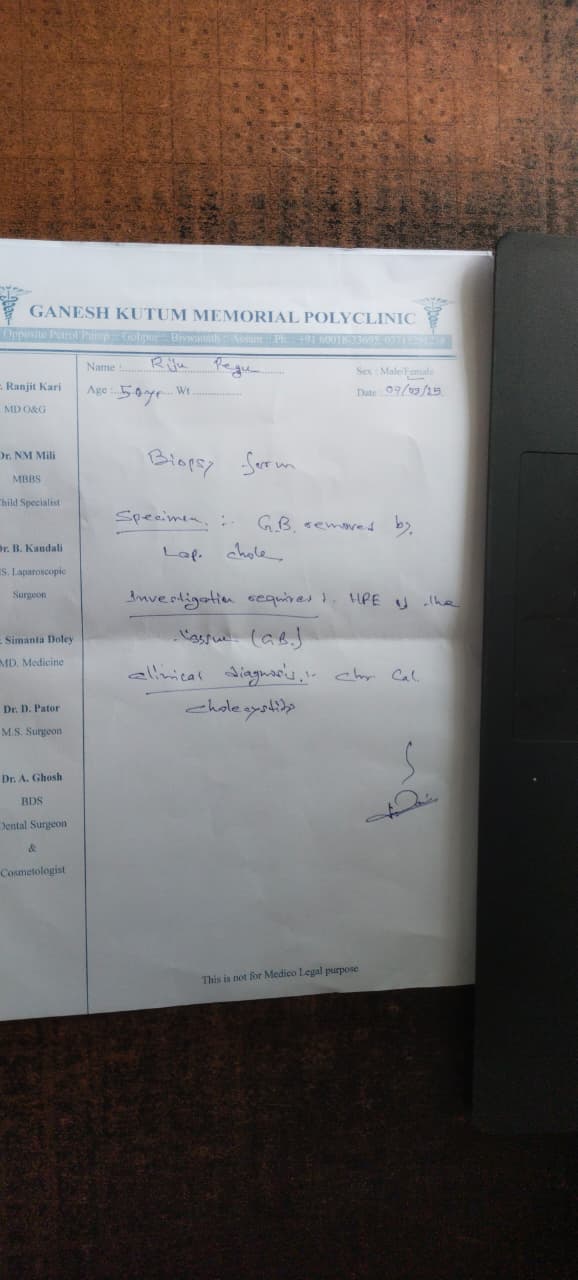 GANESH KUTUM MEMORIAL POLYCLINIC
Opposite Petrol Pump :: Gohpur :: Biswanath :: Assam :: Ph. : +91 60018-
Name : Riju Pegu
Sex : Male/Female
Age : 50yr Wt
Date 09/03/25
. Ranjit Kari
MD O&G
Dr. NM Mili
MBBS
Child Specialist
Dr. B. Kandali
S. Laparoscopic
Surgeon
. Simanta Doley
MD. Medicine
Dr. D. Pator
M.S. Surgeon
Dr. A. Ghosh
BDS
Dental Surgeon
&
Cosmetologist
Biopsy form
Specimen :- G.B. removed by
Lap. chole
Investigation required :- HPE of the
tissue (G.B.)
clinical diagnosis :- chr Cal
cholecystitis
This is not for Medico Legal purpose